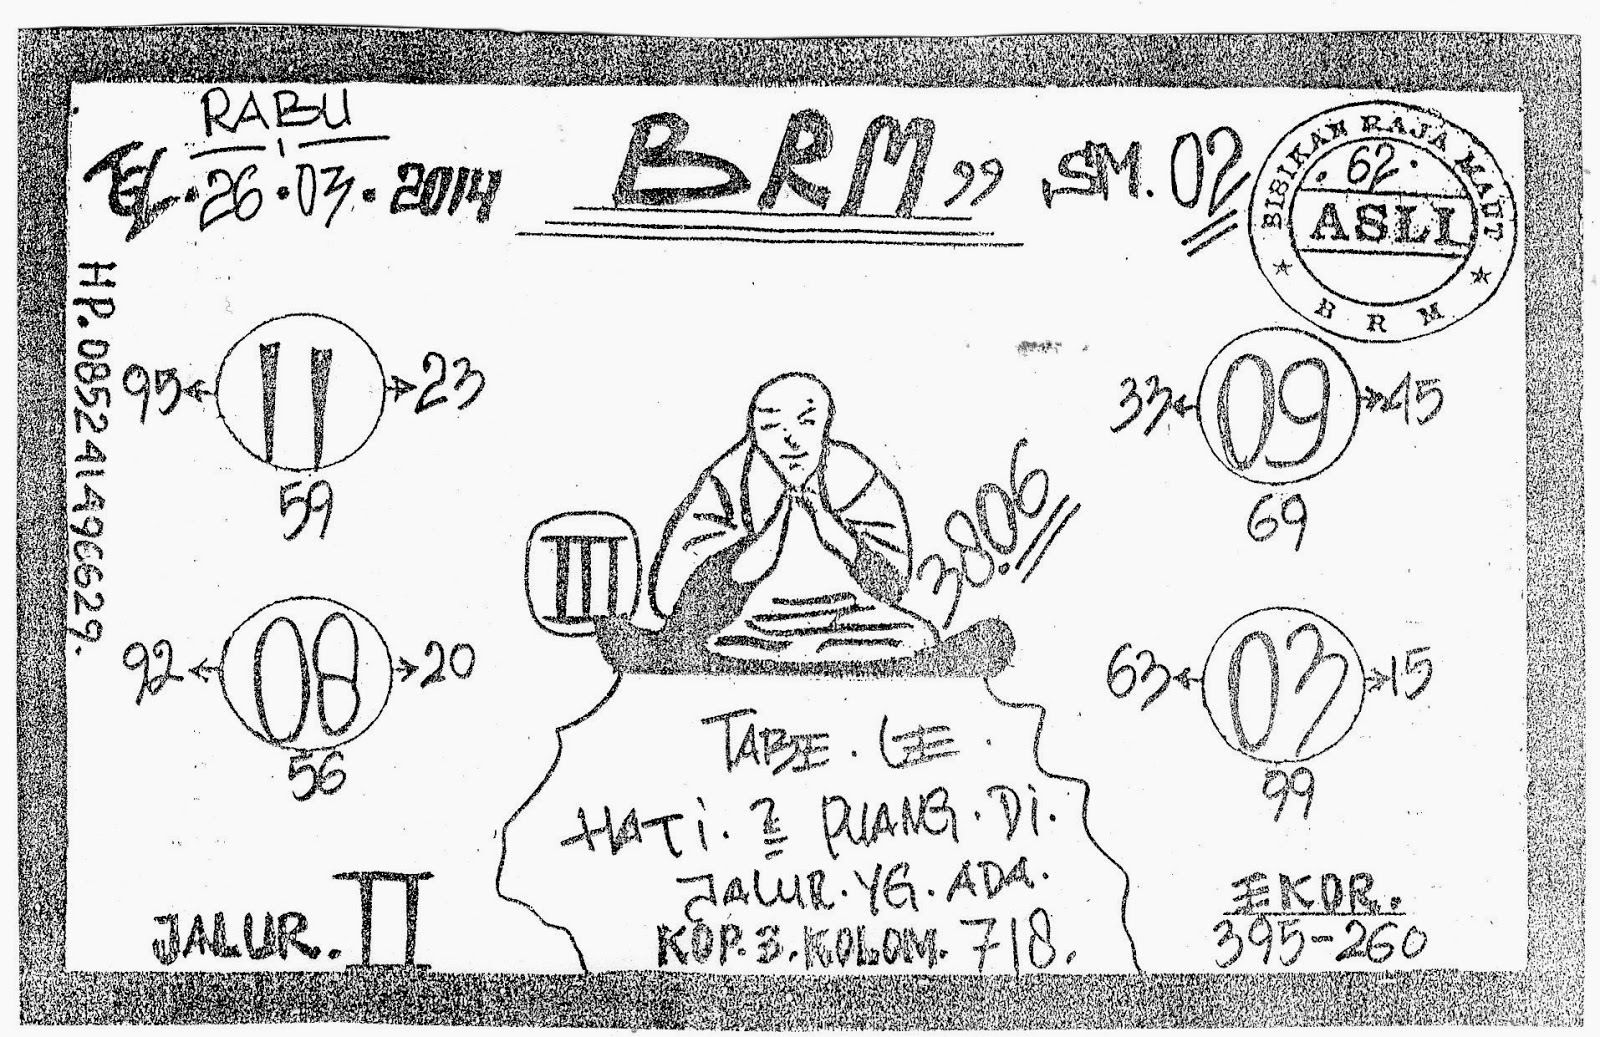 RABU
TGL. 26. 03. 2014
BRM,,
SM. 02
BISIKAN RAJA MAUT
. 62.
ASLI
BRM
HP. 085241496629.
95 11 23
59
33 09 45
69
III
38.06
92 08 20
56
63 03 15
99
TABE. LE.
HATI. 2 PUANG. DI.
JALUR. YG. ADA.
KOP. 3. KOLOM. 718.
JALUR. II
EKOR.
395-260